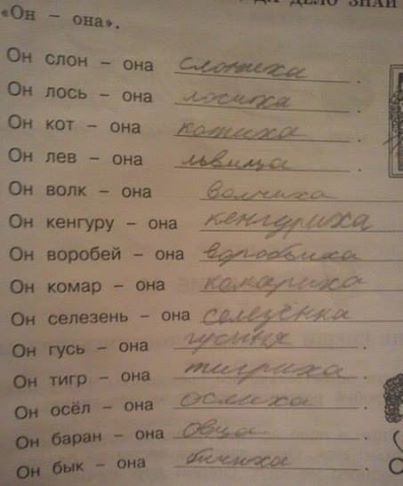 ДЕЛО ЗНАЙ
«Он – она».
Он слон – она слониха.
Он лось – она лосиха.
Он кот – она котиха.
Он лев – она львица.
Он волк – она волчиха
Он кенгуру – она кенгуриха
Он воробей – она воробьиха
Он комар – она комариха
Он селезень – она селезёнка
Он гусь – она гусиня
Он тигр – она тигриха.
Он осёл – она ослиха.
Он баран – она овца.
Он бык – она бычиха.